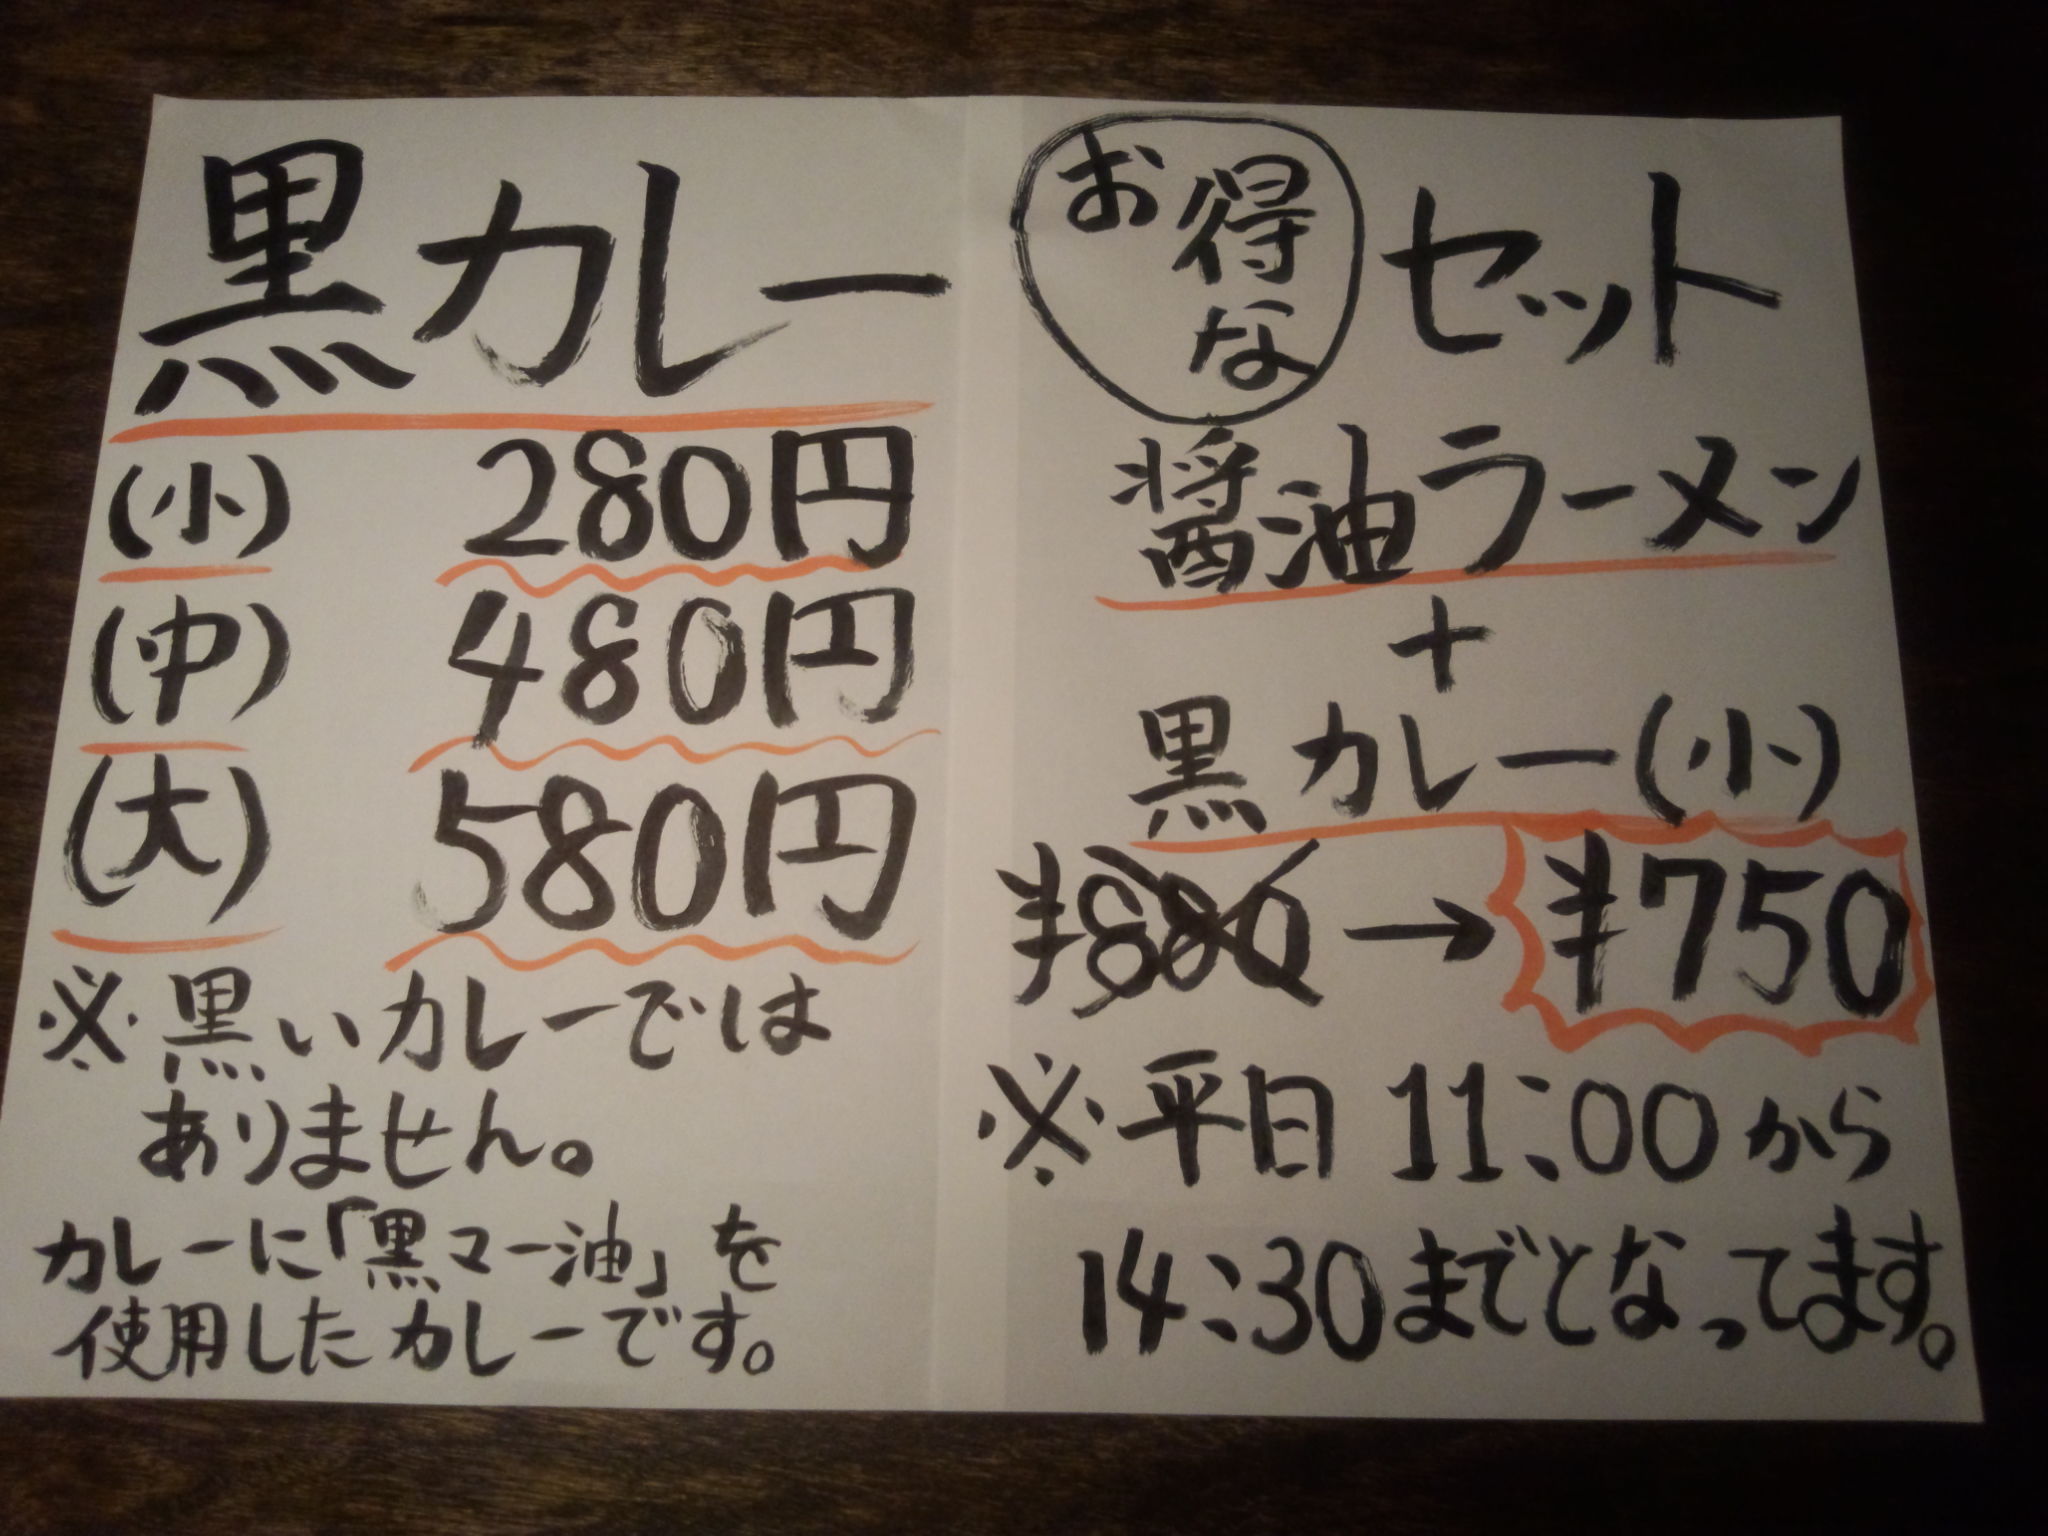 黒カレー
(小) 280円
(中) 480円
(大) 580円
※黒いカレーでは
ありません。
カレーに「黒マー油」を
使用したカレーです。
お得な セット
醤油ラーメン
+
黒カレー(小)
¥880→¥750
※平日 11:00から
14:30までとなってます。